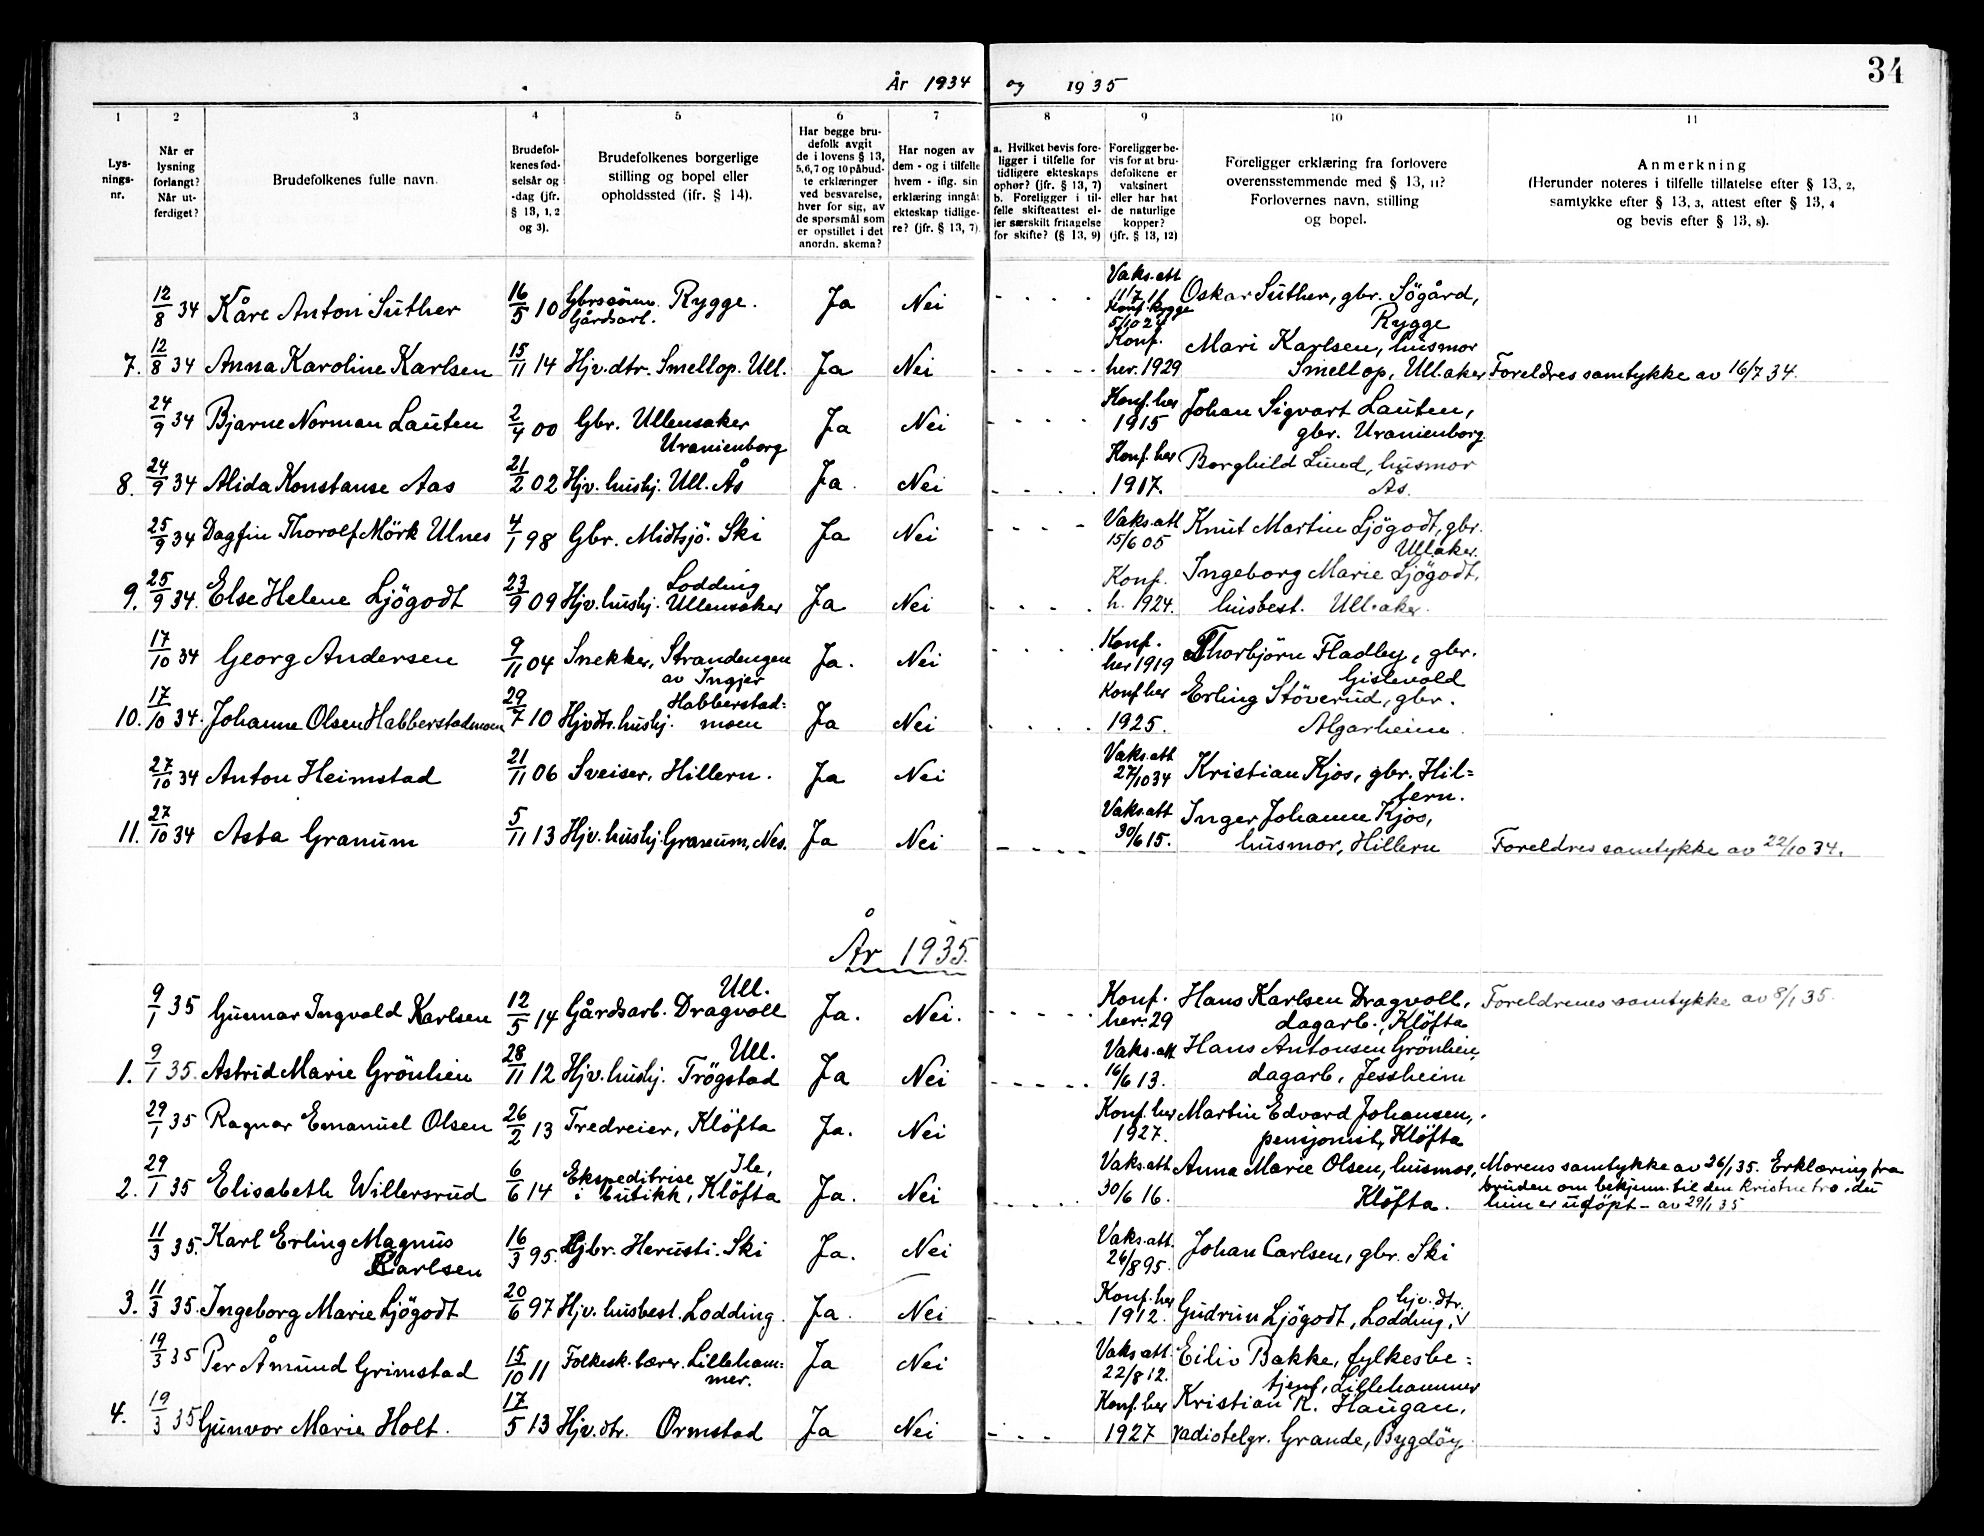 34
År 1934 og 1935
1
2
3
4
5
6
7
8
9
10
11
Lys-
nings-
nr.
Når er
lysning
forlangt?
Når ut-
ferdiget?
Brudefolkenes fulle navn.
Brudefol-
kenes fød-
selsår og
-dag (jfr.
§ 13, 1, 2
og 3).
Brudefolkenes borgerlige
stilling og bopel eller
opholdssted (ifr. § 14).
Har begge bru-
defolk avgit
de i lovens § 13,
5,6,7 og 10 påbud-
te erklæringer
ved besvarelse,
hver for sig, av
de spørsmål som
er opstillet i det
anordn. skema?
Har nogen av
dem - og i tilfelle
hvem - iflg. sin
erklæring inngåt
ekteskap tidlige-
re? (jfr. § 13, 7).
a. Hvilket bevis fore-
ligger i tilfelle for
tidligere ekteskaps
ophør? (jfr. § 13, 7)
b. Foreligger i til-
felle skifteattest el-
ler særskilt fritagelse
for skifte? (§ 13, 9)
Foreligger be-
vis for at bru-
defolkene er
vaksinert
eller har hat
de naturlige
kopper?
(jfr. § 13, 12)
Foreligger erklæring fra forlovere
overensstemmende med § 13, 11?
Forlovernes navn, stilling
og bopel.
Anmerkning
(Herunder noteres i tilfelle tillatelse efter § 13, 2,
samtykke efter § 13, 3, attest efter § 13, 4
og bevis efter § 13, 8).
12/8 34 Kåre Anton Suther 16/5 10 Gbrs.sønn. Gårdsarb. Rygge. Ja Nei Vaks.att 11/7 11 Konf. Rygge 5/10 24 Oskar Suther, gbr. Sögård, Rygge
7. 12/8 34 Anna Karoline Karlsen 15/11 14 Hjv.dtr. Smellop. Ull. Ja Nei Konf. her. 1929 Mari Karlsen, husmor Smellop, Ull.aker Foreldres samtykke av 16/7 34.
24/9 34 Bjarne Norman Lauten 2/4 00 Gbr. Ullensaker Uranienborg Ja Nei Konf. her 1915 Johan Sigvart Lauten, gbr. Uranienborg
8. 24/9 34 Alida Konstanse Aas 21/2 02 Hjv. hushj. Ull. Ås Ja. Nei Konf. her 1917. Borghild Lund, husmor Ås.
25/9 34 Dagfin Thorolf Mörk Ulnes 4/1 98 Gbr. Midtsjö. Ski Ja Nei Vaks.att 15/6 05 Knut Martin Ljögodt, gbr. Ull.aker.
9. 25/9 34. Else Helene Ljögodt 23/9 09 Hjv. hushj. Lodding Ullensaker Ja Nei Konf. h. 1924. Ingeborg Marie Ljögodt, husbest. Ull.aker.
17/10 34 Georg Andersen 9/11 04 Snekker, Strandengen av Ingjer Ja. Nei Konf. her 1919 Thorbjörn Fladby, gbr. Gislevold
10. 17/10 34. Johanne Olsen Habberstadmoen 29/7 10 Hjv.dtr. hushj. Habberstad=moen Ja Nei Konf. her 1925. Erling Stöverud, gbr. Algarheim.
27/10 34 Anton Heimstad 21/11 06 Sveiser, Hillern. Ja Nei Vaks.att 27/10 34 Kristian Kjos, gbr. Hil=lern.
11. 27/10 34 Asta Granum 5/11 13 Hjv. hushj. Granum, Nes. Ja Nei Vaks.att 30/6 15. Inger Johanne Kjos, husmor, Hillern Foreldres samtykke av 22/10 34.
År 1935.
9/1 35 Gunnar Ingvald Karlsen 12/5 14 Gårdsarb. Dragvoll Ull. Ja. Nei. Konf. her. 29 Hans Karlsen Dragvoll, dagarb., Klöfta Foreldrenes samtykke av 8/1 35.
1. 9/1 35. Astrid Marie Grönlien 28/11 12 Hjv. hushj. Trögstad Ull. Ja Nei Vaks.att 16/6 13. Hans Antonsen Grönlien, dagarb, Jessheim
29/1 35 Ragnar Emanuel Olsen 26/2 13 Tredreier, Klöfta Ja. Nei Konf. her 1927. Martin Edvard Johansen, pensjonist, Klöfta
2. 29/1 35 Elisabeth Willersrud 6/6 14 Ekspeditrise i butikk, Ile, Klöfta Ja. Nei Vaks.att 30/6 16. Anna Marie Olsen, husmor, Klöfta. Morens samtykke av 26/1 35. Erklæring fra bruden om bekjenn. til den kristne tro, du hun er udöpt - av 29/1 35
11/3 35. Karl Erling Magnus Karlsen 16/3 95. Gbr. Herusti. Ski Ja. Nei Vaks.att. 26/8 95. Johan Carlsen, gbr. Ski
3. 11/3 35. Ingeborg Marie Ljögodt 20/6 97 Hjv. husbest. Lodding. Ja. Nei Konf. her 1912. Gudrun Ljögodt, Lodding, hjv. dtr.
19/3 35 Per Åmund Grimstad 15/10 11 Folkesk.lærer. Lilleham=mer. Ja Nei Vaks.att 22/8 12. Eiliv Bakke, fylkesbe=tjent, Lillehammer
4. 19/3 35 Gunvor Marie Holt. 17/5 13 Hjv. dtr. Ormstad Ja Nei Konf. her 1927 Kristian R. Haugan, radiotelgr. Grande, Bygdöy.